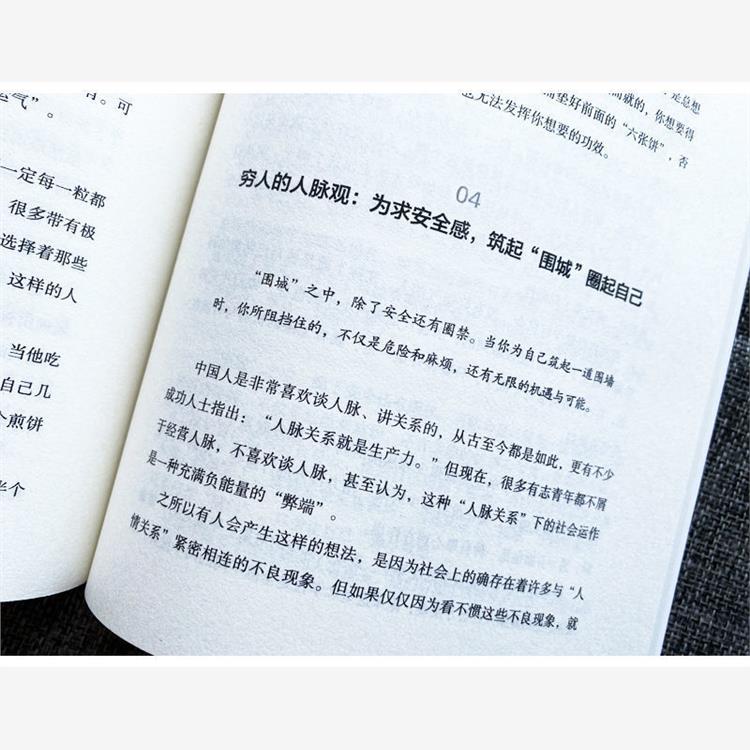 有。可
运气”。
一定每一粒都
很多带有极
选择着那些
这样的人
当他吃
自己几
个煎饼
半个
是总想
而就的，你想要得
垫好前面的“六张饼”，否
也无法发挥你想要的功效。
04
穷人的人脉观：为求安全感，筑起“围城”圈起自己
“围城”之中，除了安全还有圈禁。当你为自己筑起一道围墙
时，你所阻挡住的，不仅是危险和麻烦，还有无限的机遇与可能。
中国人是非常喜欢谈人脉、讲关系的，从古至今都是如此，更有不少
成功人士指出：“人脉关系就是生产力。”但现在，很多有志青年都不屑
于经营人脉，不喜欢谈人脉，甚至认为，这种“人脉关系”下的社会运作
是一种充满负能量的“弊端”。
之所以有人会产生这样的想法，是因为社会上的确存在着许多与“人
情关系”紧密相连的不良现象。但如果仅仅因为看不惯这些不良现象，就